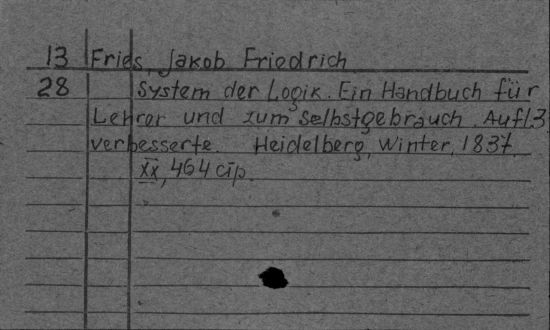 13 Fries, Jakob Friedrich
28 System der Logik. Ein Handbuch für
Lehrer und zum Selbstgebrauch. Aufl.3
verbesserte. Heidelberg, Winter, 1837,
xx, 464 cīp.